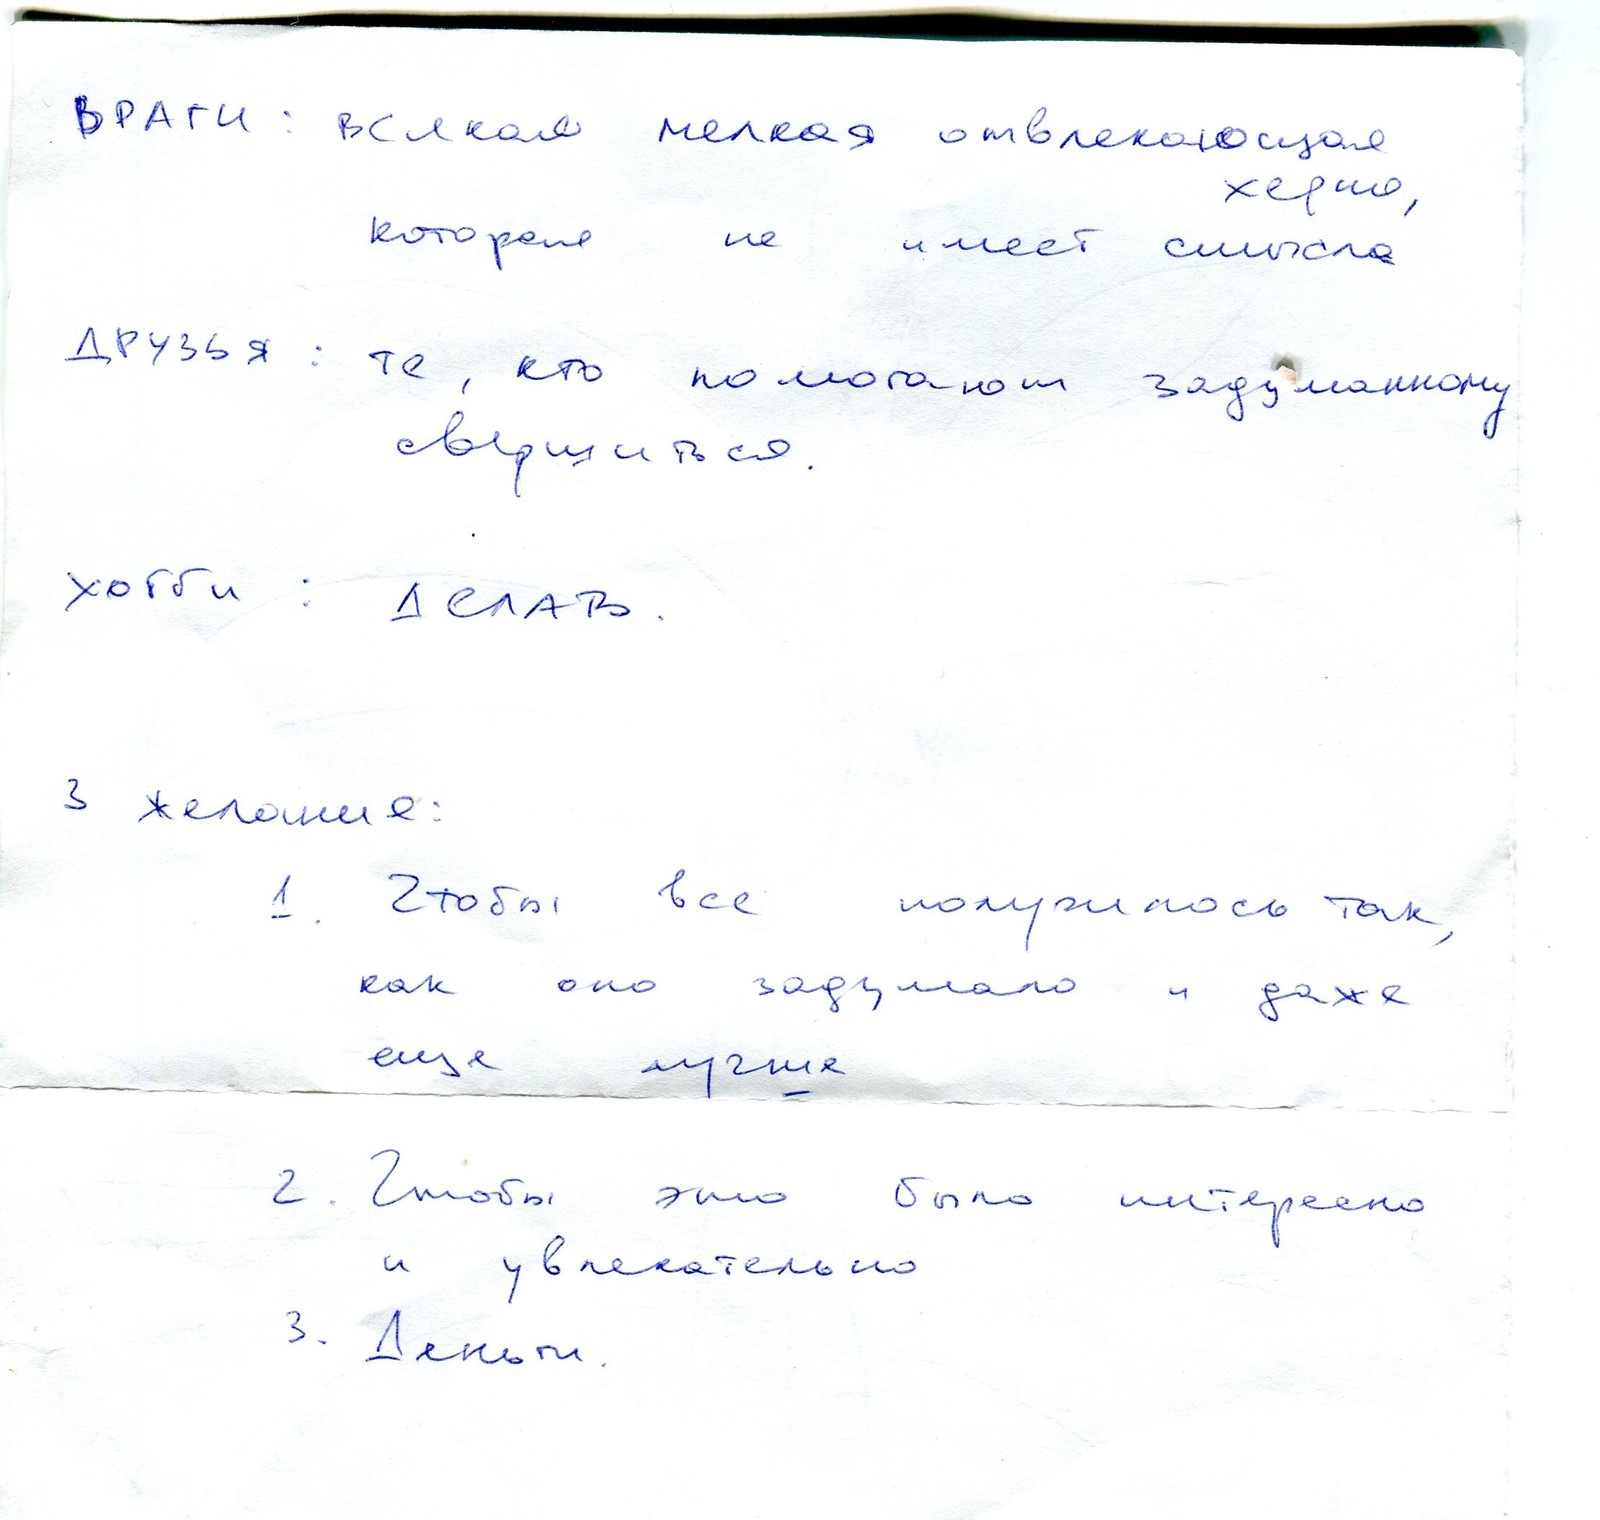 ВРАГИ: всякая мелкая отвлекающая
херня,
которая не имеет смысла
ДРУЗЬЯ: те, кто помогают задуманному
свершиться.
хобби: ДЕЛАТЬ.
3 желания:
1. Чтобы все получилось так,
как оно задумало и даже
еще лучше
2. Чтобы это было интересно
и увлекательно
3. Деньги.